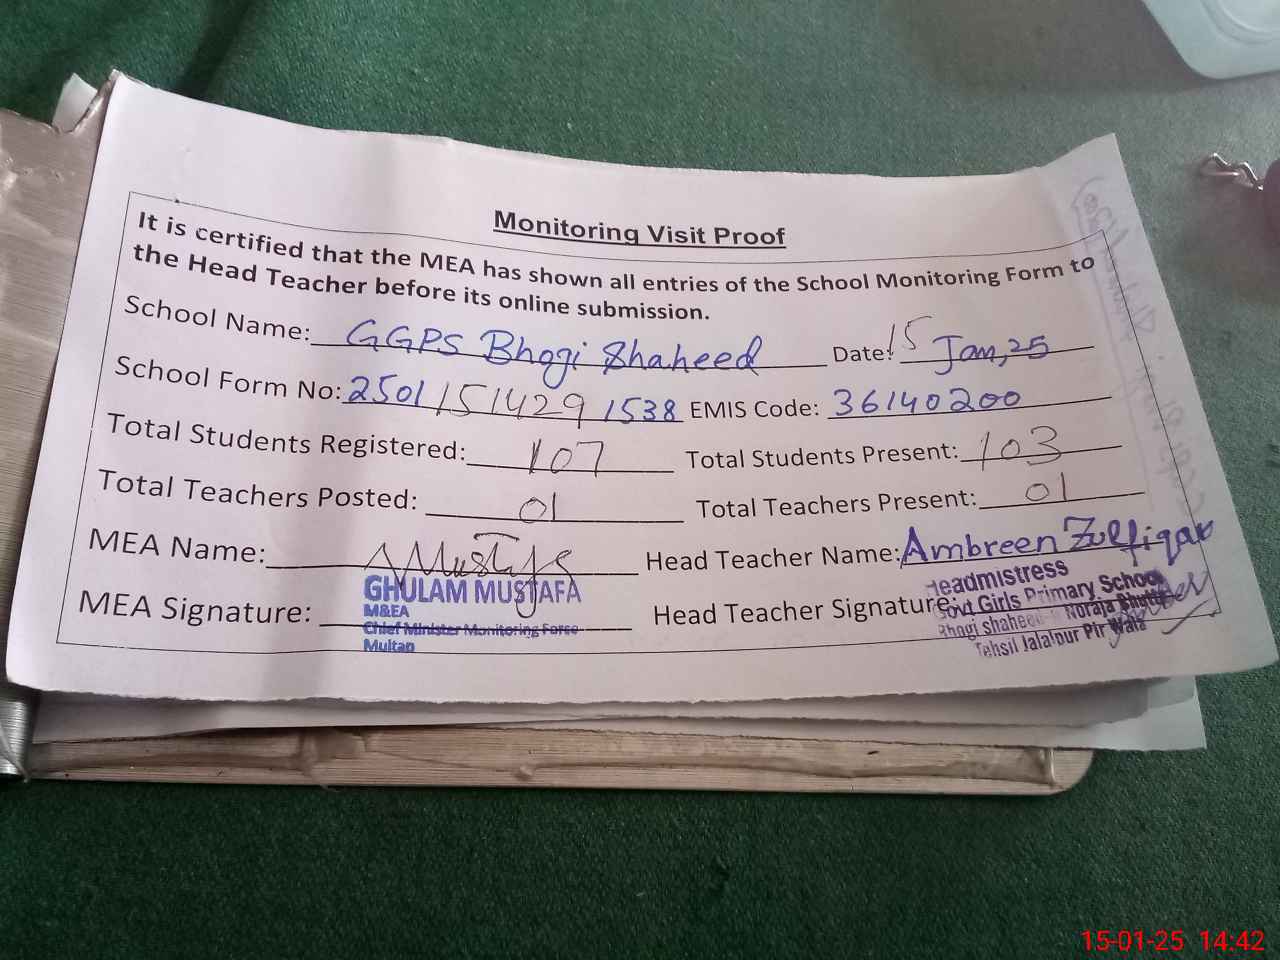 Monitoring Visit Proof
It is certified that the MEA has shown all entries of the School Monitoring Form to
the Head Teacher before its online submission.
School Name: GGPS Bhogi Shaheed Date: 15 Jan, 25
School Form No: 2501151429 1538 EMIS Code: 36140200
Total Students Registered: 107 Total Students Present: 103
Total Teachers Posted: 01 Total Teachers Present: 01
MEA Name: Mustafa Head Teacher Name: Ambreen Zulfiqar
MEA Signature: Head Teacher Signature:
GHULAM MUSTAFA
M&EA
Chief Minister Monitoring Force
Multan
Headmistress
Govt Girls Primary School
Bhogi shaheed Noraja Bhutta
Tehsil Jalalpur Pir Wala
15-01-25 14:42